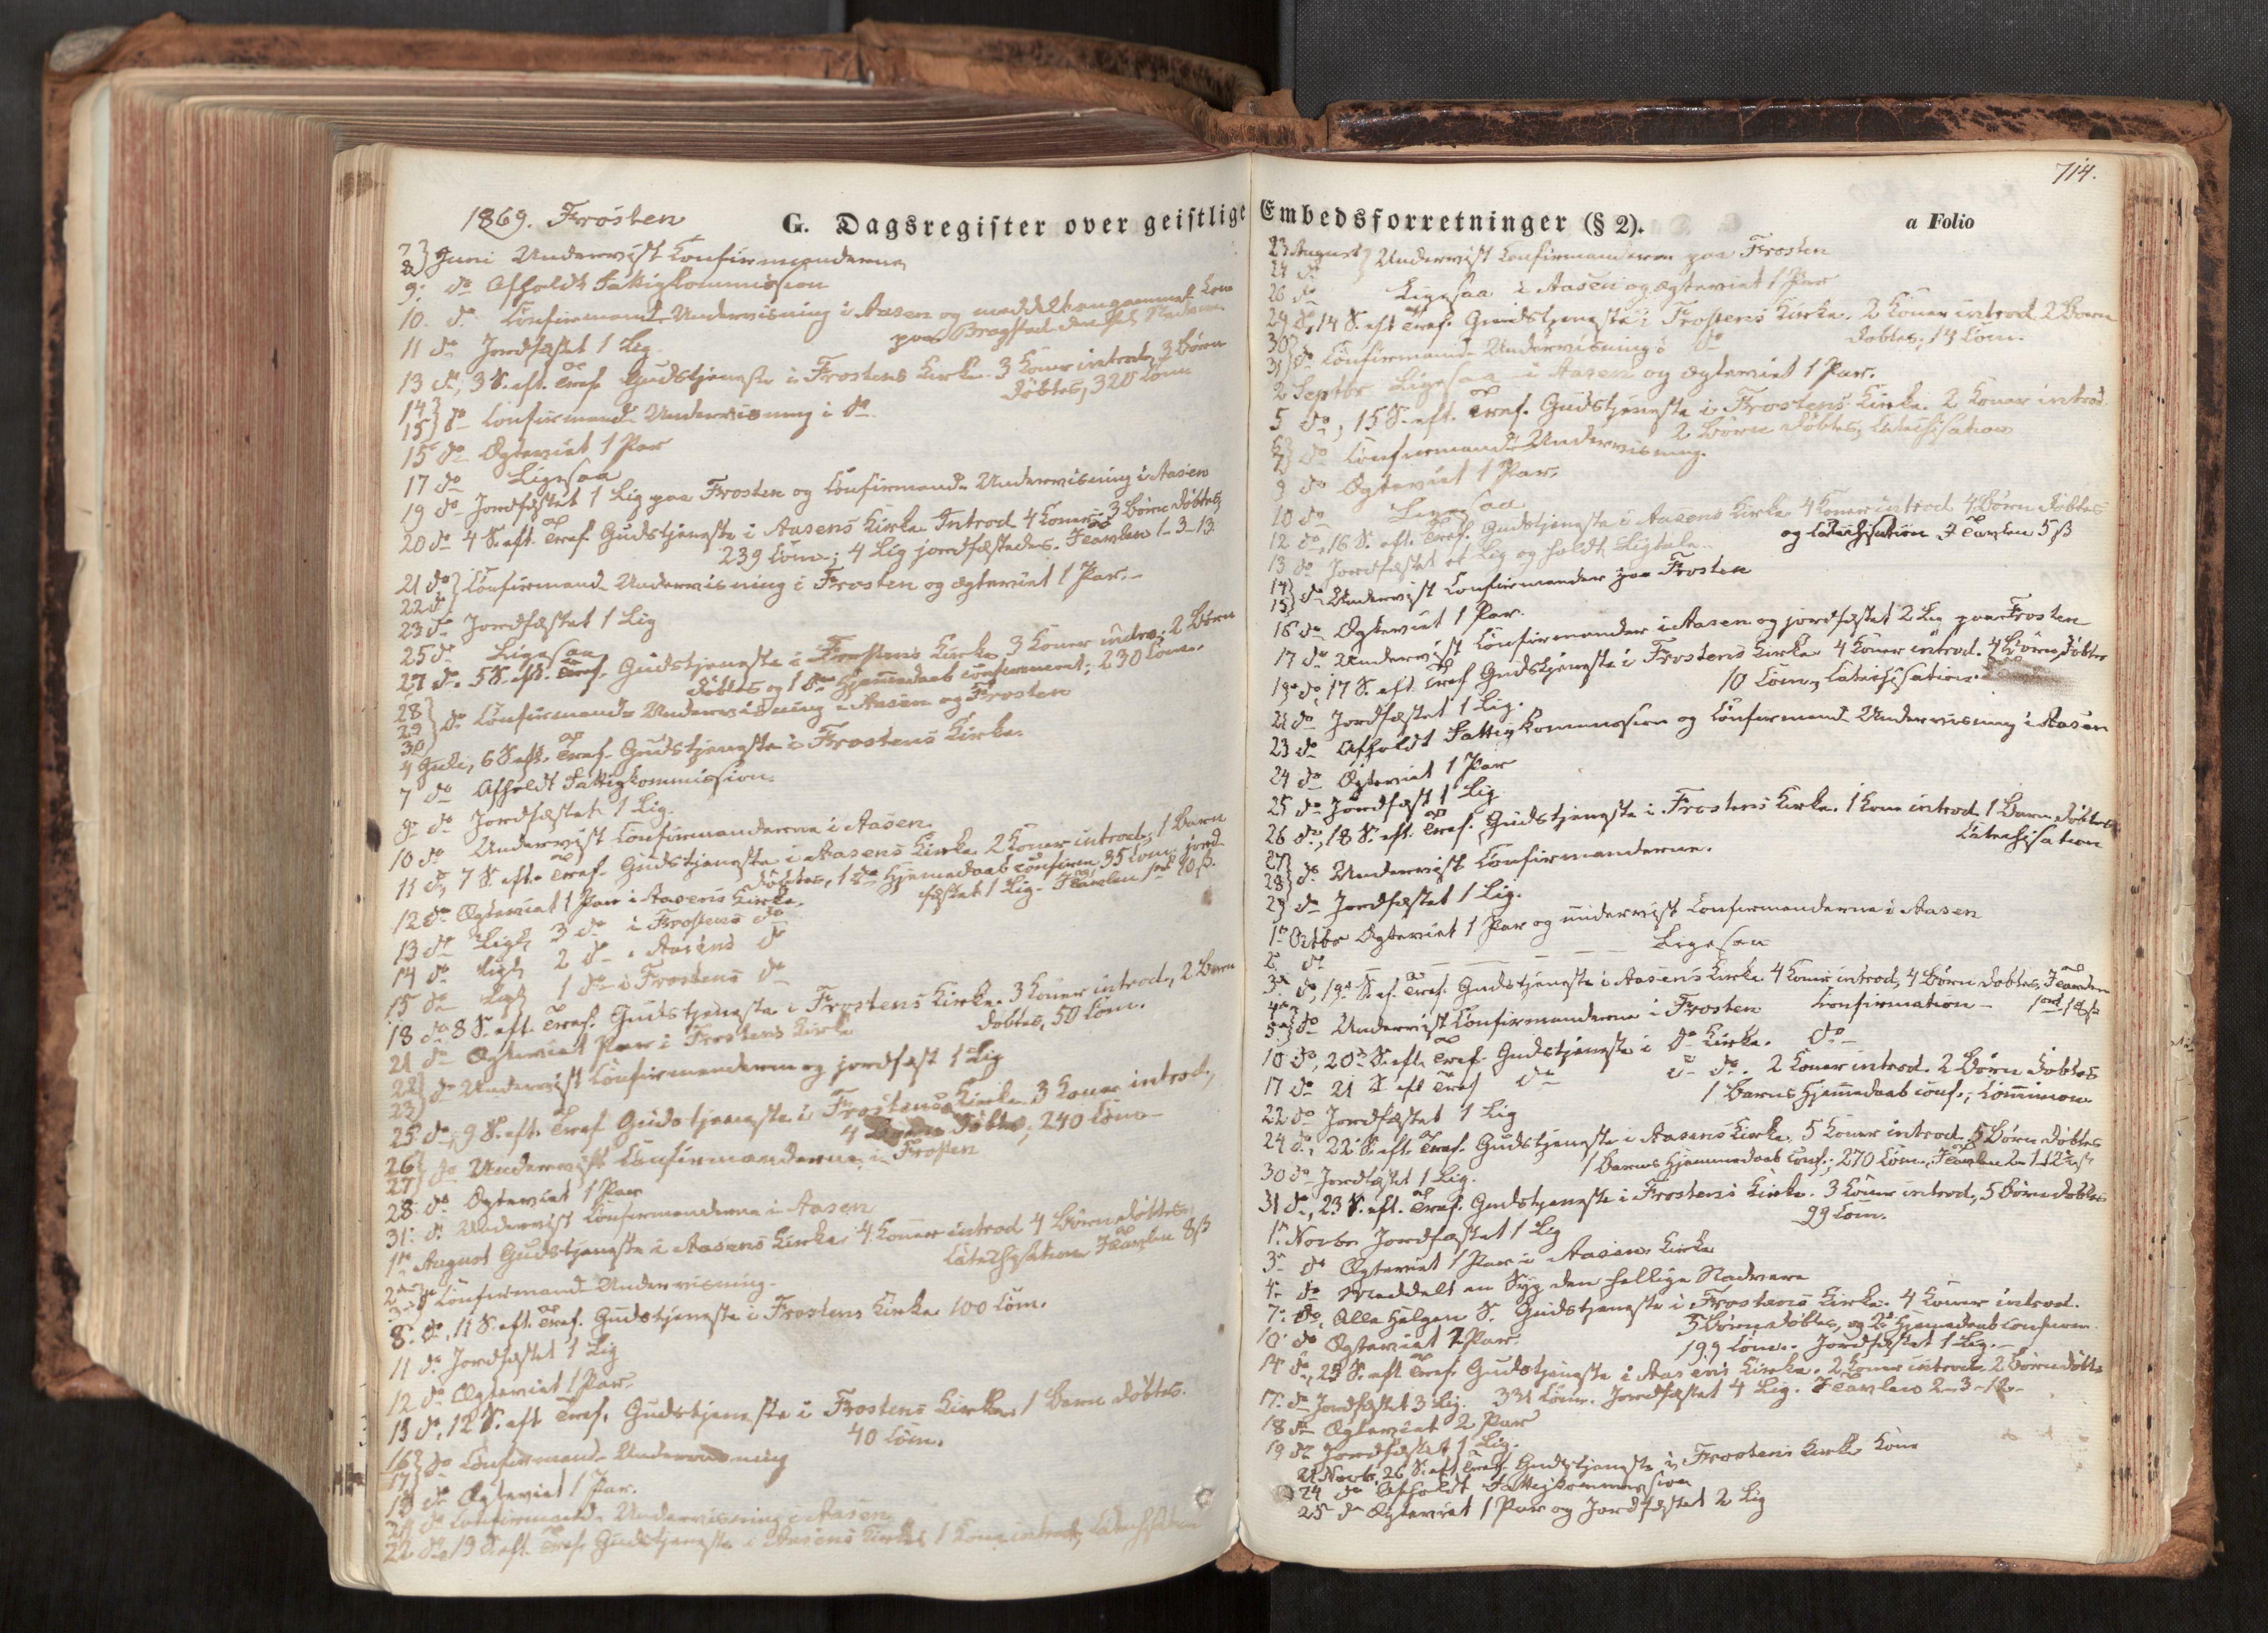 1869. Frosten
G. Dagsregister over geistlige
7} 8} Juni Underviist Confirmanderne
9. do Afholdt Fattigkommission
10. do Confirmand-Undervisning i Aasen og meddelt en gammel Kone
paa Bragstad den hel. Nadvere
11 do Jordfæstet 1 Lig.
13 do, 3 S. eft. Tref. Gudstjeneste i Frostens Kirke 3 Koner introd., 3 Børn
døbtes, 320 Com.
14} 15} do Confirmand-Undervisning i do
15 do Ægteviet 1 Par
17 do Ligesaa
19 do Jordfæstet 1 Lig paa Frosten og Confirmand-Undervisning i Aasen
20 do 4 S. eft. Tref. Gudstjeneste i Aasens Kirke Introd. 4 Koner, 3 Børn døbtes,
239 Com; 4 Lig jordfæstedes. I Tavlen 1-3-13.
21 do} 22 do} Confirmand-Undervisning i Frosten og ægteviet 1 Par.
23 do Jordfæstet 1 Lig
25 do Ligesaa
27 do. 5 S. eft. Tref. Gudstjeneste i Frostens Kirke 3 Koner introd; 2 Børn
døbtes og 1 Bs Hjemmedaab confirmeret; 230 Com.
28} 29} 30} do Confirmand-Undervisning i Aasen og Frosten
4 Juli, 6 S. eft. Tref. Gudstjeneste i Frostens Kirke.
7 do Afholdt Fattigkommission.
9 do Jordfæstet 1 Lig.
10 do Underviist Confirmanderne i Aasen.
11 do, 7 S. eft. Tref. Gudstjeneste i Aasens Kirke 2 Koner introd., 1 Barn
døbtes, 1 do Hjemmedaab confirm. 35 Com. jord-
fæstet 1 Lig. I Tavlen 1 ort 10 ß.
12 do Ægteviet 1 Par i Aasens Kirke.
13 do Ligl. 3 do i Frostens do
14 do Ligl. 2 do i Aasens do
15 do Ligl. 1 do i Frostens do
18 do 8 S. eft. Tref. Gudstjeneste i Frostens Kirke. 3 Koner introd., 2 Børn
døbtes, 50 Com.
21 do Ægteviet Par i Frostens Kirke
22} 23} do Underviist Confirmanderne og jordfæst 1 Lig
25 do, 9 S. eft. Tref. Gudstjeneste i Frostens Kirke 3 Koner introd.,
4 Børn døbtes, 240 Com
26} 27} do Underviist Confirmanderne i Frosten
28 do Ægteviet 1 Par
31. do Underviist Confirmanderne i Aasen
1ste August Gudstjeneste i Aasens Kirke, 4 Koner introd. 4 Børn døbtes.
Catechisation I Tavlen 8 ß
2den} 3die} Confirmand-Undervisning.
8. do, 11 S. eft. Tref. Gudstjeneste i Frostens Kirke 100 Com.
11 do Jordfæstet 1 Lig
12 do Ægteviet 1 Par.
15 do, 12 S. eft Tref. Gudstjeneste i Frostens Kirke 1 Barn døbtes.
40 Com.
16} 17} do Confirmand-Undervisning
19 do Ægteviet 1 Par.
do Confirmand-Undervisning i Aasen
22 do, 13 S. eft. Tref. Gudstjeneste i Aasens Kirke, 1 Kone introd, Catechisation
714.
Embedsforretninger (§ 2).
a Folio
23 August} 24 do} Underviist Confirmanderne paa Frosten
26 do Ligesaa i Aasen og ægteviet 1 Par
29 do, 14 S. eft Tref. Gudstjeneste i Frostens Kirke. 2 Koner introd. 2 Børn
døbtes, 14 Com.
30} 31} do Confirmand-Undervisning i do
2 Septbr Ligesaa i Aasen og ægteviet 1 Par.
5 do, 15 S. eft. Tref. Gudstjeneste i Frostens Kirke. 2 Koner introd.
2 Børn døbtes, Catechisation
6} 7} do Confirmand-Undervisning.
9 do Ægteviet 1 Par.
10 do Ligesaa
12 do, 16 S. eft. Tref. Gudstjeneste i Aasens Kirke 4 Koner introd 4 Børn døbtes
og Catechisation I Tavlen 5 ß
13 do Jordfæstet et Lig og holdt Ligtale.
14} 15} do Underviist Confirmander paa Frosten
16 do Ægteviet 1 Par.
17 do Underviist Confirmander i Aasen og jordfæstet 2 Lig paa Frosten
19 do, 17 S. eft. Tref Gudstjeneste i Frostens Kirke 4 Koner introd. 4 Børn døbtes
10 Com, Catechisation.
21 do Jordfæstet 1 Lig.
23 do Afholdt Fattigkommission og Confirmand-Undervisning i Aasen
24 do Ægteviet 1 Par
25 do Jordfæst 1 Lig
26 do, 18 S. eft. Tref. Gudstjeneste i Frostens Kirke. 1 Kone introd. 1 Barn døbtes
Catechisation
27} 28} do Underviist Confirmanderne.
29 do Jordfæstet 1 Lig.
1ste Octbr Ægteviet 1 Par og underviist Confirmanderne i Aasen
2 do — — — — — Ligesaa
3die do, 19de S. ef. Tref. Gudstjeneste i Aasens Kirke 4 Koner introd, 4 Børn døbtes, I Tavlen
Confirmation — 1 ort 18 ß
4de} 5te} do Underviist Confirmanderne i Frosten
10 do, 20de S. eft. Tref. Gudstjeneste i do Kirke. do
17 do 21 S eft Tref do i do. 2 Koner introd. 2 Børn døbtes
1 Barns Hjemmedaab conf.; Communion
22 do Jordfæstet 1 Lig
24 do, 22 S. eft. Tref. Gudstjeneste i Aasens Kirke. 5 Koner introd, 5 Børn døbtes
1 Barns Hjemmedaab Conf.; 270 Com, I Tavlen
30 do Jordfæstet 1 Lig.
31 do, 23 S. eft. Tref. Gudstjeneste i Frostens Kirke. 3 Koner introd, 5 Børn døbtes
99 Com.
1. Novbr Jordfæstet 1 Lig
3. do Ægteviet 1 Par i Aasens Kirke
4. do Meddelt en Syg den hellige Nadvere
7. do. Alle Helgen S. Gudstjeneste i Frostens Kirke. 4 Koner introd.
5 Børn døbtes, og 2 Hjemmedaab confirm.
199 Com. Jordfæstet 1 Lig.
10 do Ægteviet 2 Par.
14 do, 25 S. eft Tref. Gudstjeneste i Aasens Kirke. 2 Koner introd. 2 Børn døbte
331 Com. Jordfæstet 4 Lig. I Tavlen 2-3-12.
17. do Jordfæstet 3 Lig.
18 do Ægteviet 2 Par
19 do Jordfæstet 1 Lig.
21 Novb, 26 S. eft Tref. Gudstjeneste i Frostens Kirke Com
24 do Afholdt Fattigkommission
25 do Ægteviet 1 Par og Jordfæstet 2 Lig